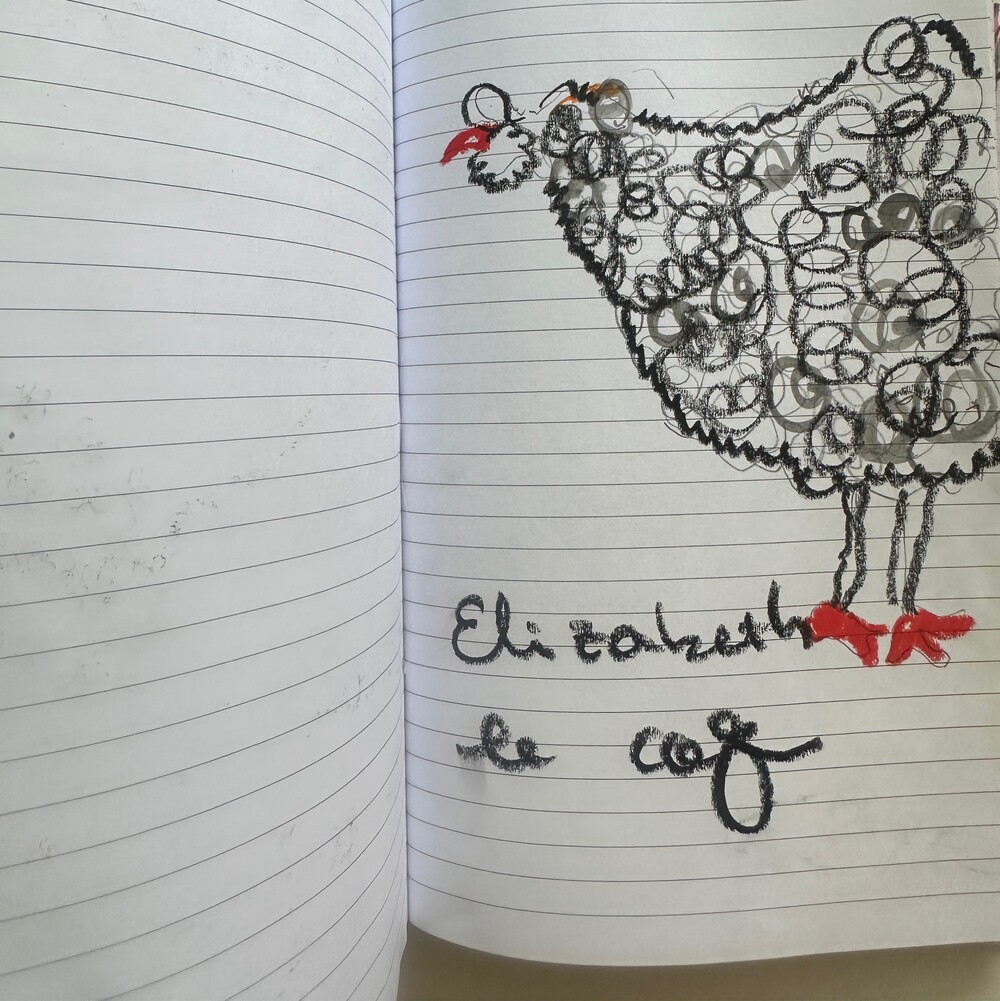 Elizabeth
le coq